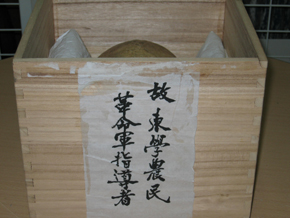 故東學農民
革命軍指導者